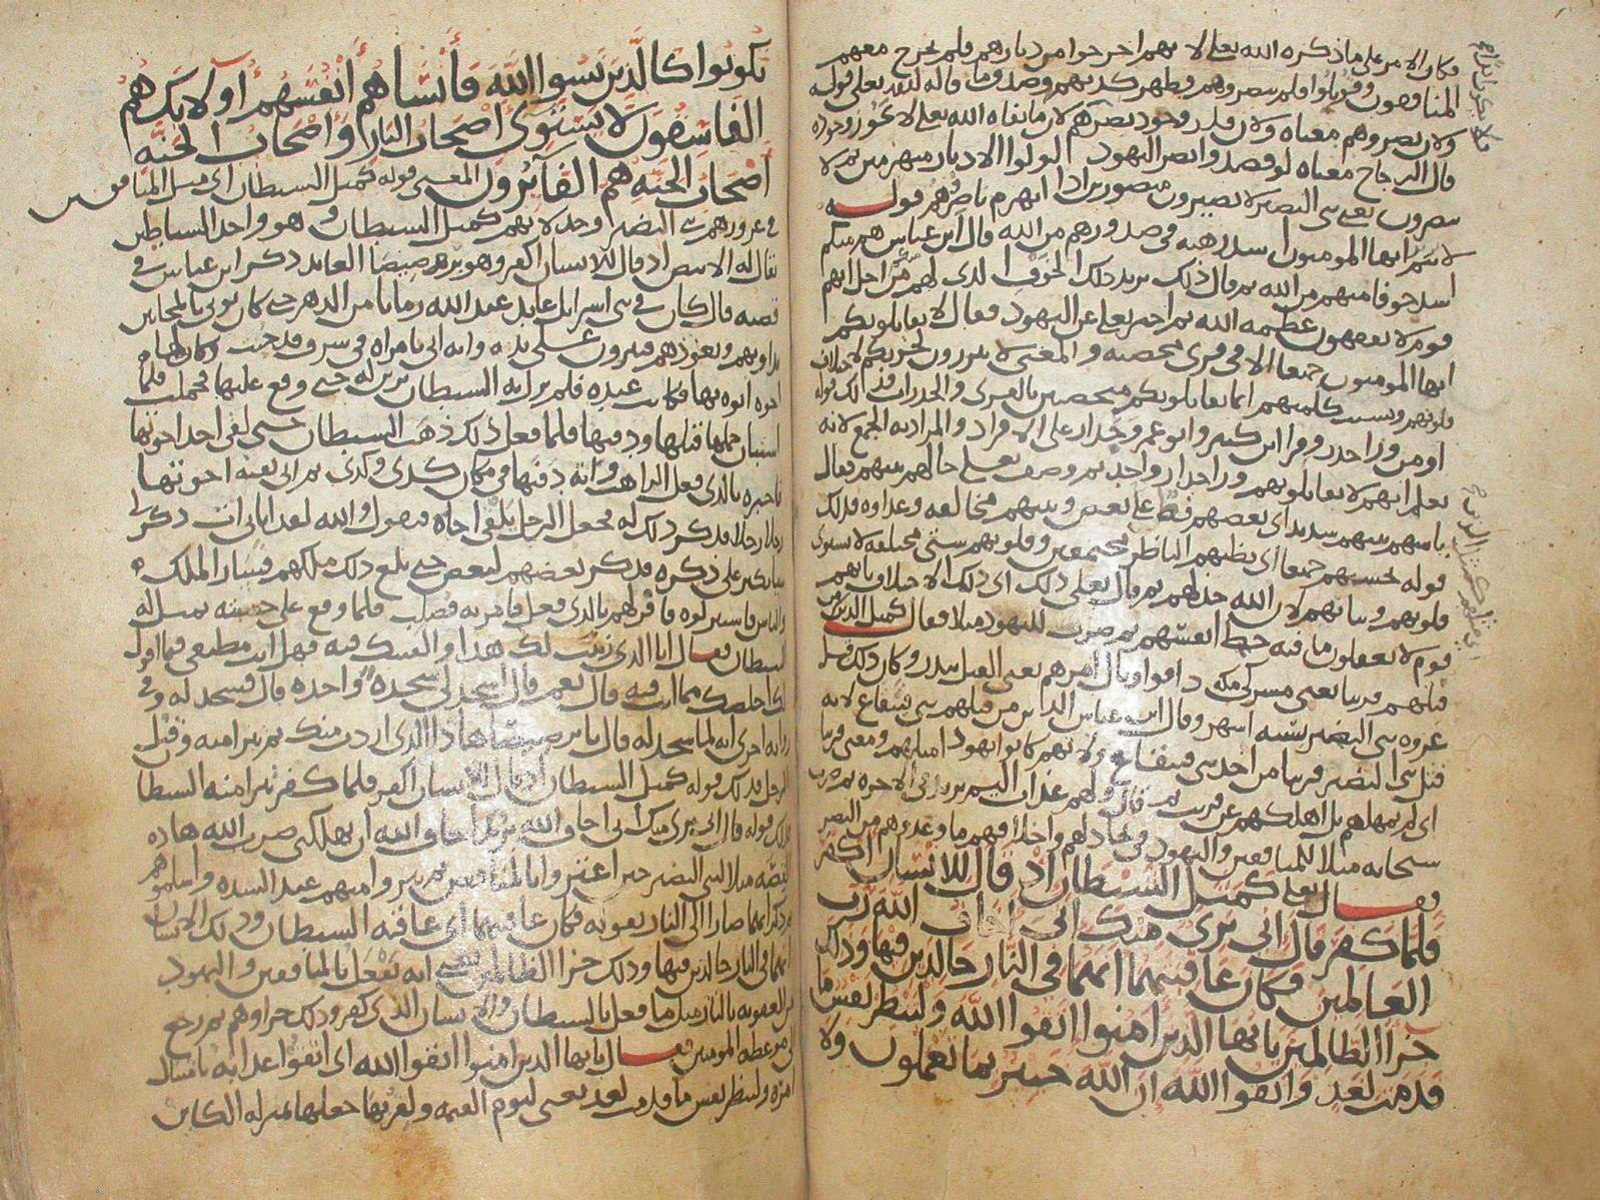 فكان الامر على ما ذكره الله تعلى لانهم اخرجوا من ديارهم فلم يخرج معهم
المنافقون وقوتلوا فلم ينصروهم فظهر كذبهم وصدق ما قاله الله تعلى قوله
ولان نصروهم معناه ولان قدر وجود نصرهم لان ما نفاه الله تعلى لا يجوز وجوده
قال الزجاج معناه لو قصدوا نصر اليهود لولوا الادبار منهزمين ثم لا
ينصرون يعني بني النضير لا يصيرون منصورين اذا انهزم ناصروهم قوله
لانتم ايها المومنون اشد رهبة في صدورهم من الله قال ابن عباس هم منكم
اشد خوفا منهم من الله ثم قال ذلك يريد ذلك الخوف الذي لهم منكم من اجل انهم
قوم لا يفقهون عظمة الله ثم اخبر تعلى عن اليهود فقال لا يقاتلونكم
ايها المومنون جميعا الا في قرى محصنة والمعنى لا يبرزون لحربكم لاختلاف
قلوبهم وتشتت كلمتهم انما يقاتلونكم متحصنين بالقرى والجدرات فذلك قوله
او من وراء جدر وقرا ابن كثير وابو عمرو جدار على الافراد والمراد به الجمع لانه
يعلم انهم لا يقاتلونهم وراء جدار واحد ثم وصف تعلى حالهم بينهم فقال
باسهم بينهم شديد اي بعضهم فظ على بعض وبينهم مخالفة وعداوة فذلك
قوله تحسبهم جميعا اي يظنهم الناظر مجتمعين وقلوبهم شتى مختلفة لا تستوي
قلوبهم ونياتهم لان الله خذلهم ثم قال تعلى ذلك اي ذلك الاختلاف بانهم
قوم لا يعقلون ما فيه حظ انفسهم ثم ضرب لليهود مثلا فقال كمثل الذين من
قبلهم قريبا يعني مشركي مكة ذاقوا وبال امرهم يعني القتل ببدر وكان ذلك قبل
غزوة بني النضير بستة اشهر وقال ابن عباس الذين من قبلهم بني قينقاع لانه
قتل بني النضير قريبا من اجد بني قينقاع ولانهم كانوا يهود امثلهم ومعنى قريبا
اي لم يمهلهم بل اهلكهم عن قريب ثم قال ولهم عذاب اليم يريد في الاخرة ثم ضرب
سبحانه مثلا للمنافقين واليهود في تخاذلهم واخلافهم ما وعدوهم من النصر
فقال تعلى كمثل الشيطان اذ قال للانسان اكفر
فلما كفر قال اني بري منك اني اخاف الله رب
العالمين فكان عاقبتهما انهما في النار خالدين فيها وذلك
جزا الظالمين يا ايها الذين امنوا اتقوا الله ولتنظر نفس ما
قدمت لغد واتقوا الله ان الله خبير بما تعملون ولا
تكونوا كالذين نسوا الله فانساهم انفسهم اولايك هم
الفاسقون لا يستوي اصحاب النار واصحاب الجنة
اصحاب الجنة هم الفائزون المعنى قوله كمثل الشيطان اي مثل المنافقين
في غرورهم بني النضير وخذلانهم كمثل الشيطان وهو واحد الشياطين
يقال له الابيض اذ قال للانسان اكفر وهو برصيصا العابد ذكر ابن عباس في
قصته قال كان في بني اسرايل عابد عبد الله زمانا من الدهر حتى كان يوتى بالمجانين
يداويهم ويعوذهم فيبرون على يده وانه اتي بامراة في شرف قد جنت وكان لها
اخوة اتوه بها فكانت عنده فلم يزل به الشيطان يزين له حتى وقع عليها فحملت فلما
استبان حملها قتلها ودفنها فلما فعل ذلك ذهب الشيطان حتى لقي احد اخوتها
فاخبره بالذي فعل الراهب وانه دفنها في مكان كذى وكذى ثم اتى بقية اخوتها
رجلا رجلا فذكر ذلك له فجعل الرجل يلقى اخاه فيقول والله لقد اتاني ات ذكر لي
شيا يكبر علي ذكره فذكر بعضهم لبعض حتى بلغ ذلك ملكهم فسار الملك
والناس فاستنزلوه فاقر لهم بالذي فعل فامر به فصلب فلما وقع على خشبته تمثل له
الشيطان فقال انا الذي زينت لك هذا والقيتك فيه فهل انت مطيعي فيما اقول
لك اخلصك مما انت فيه قال نعم قال اسجد لي سجدة واحدة قال فسجد له وفي
رواية اخرى انه لما سجد له قال يا برصيصا هاذا الذي اردت منك ثم تبرا منه وقتل
الرجل فذلك قوله كمثل الشيطان اذ قال للانسان اكفر فلما كفر تبرا منه الشيطا
فذلك قوله قال اني بري منك اني اخاف الله يريد اخاف الله ان يهلكني ضرب الله هاذه
القصة مثلا لبني النضير حين اغتروا بالمنافقين ثم تبروا منهم عند الشدة واسلموهم
ثم ذكر انهما صارا الى النار بقوله فكان عاقبتهما اي عاقبة الشيطان وذلك الانسان
انهما في النار خالدين فيها وذلك جزا الظالمين يعني انه يفعل بالمنافقين واليهود
من العقوبة بالنار مثل ما فعل بالشيطان والانسان الذي كفر وذلك جزاوهم ثم رجع
الى موعظة المومنين فقال يا ايها الذين امنوا اتقوا الله اي اتقوا عذابه بامتثال
امره ولتنظر نفس ما قدمت لغد يعني ليوم القيمة ولقربها جعلها بمنزلة الكاين